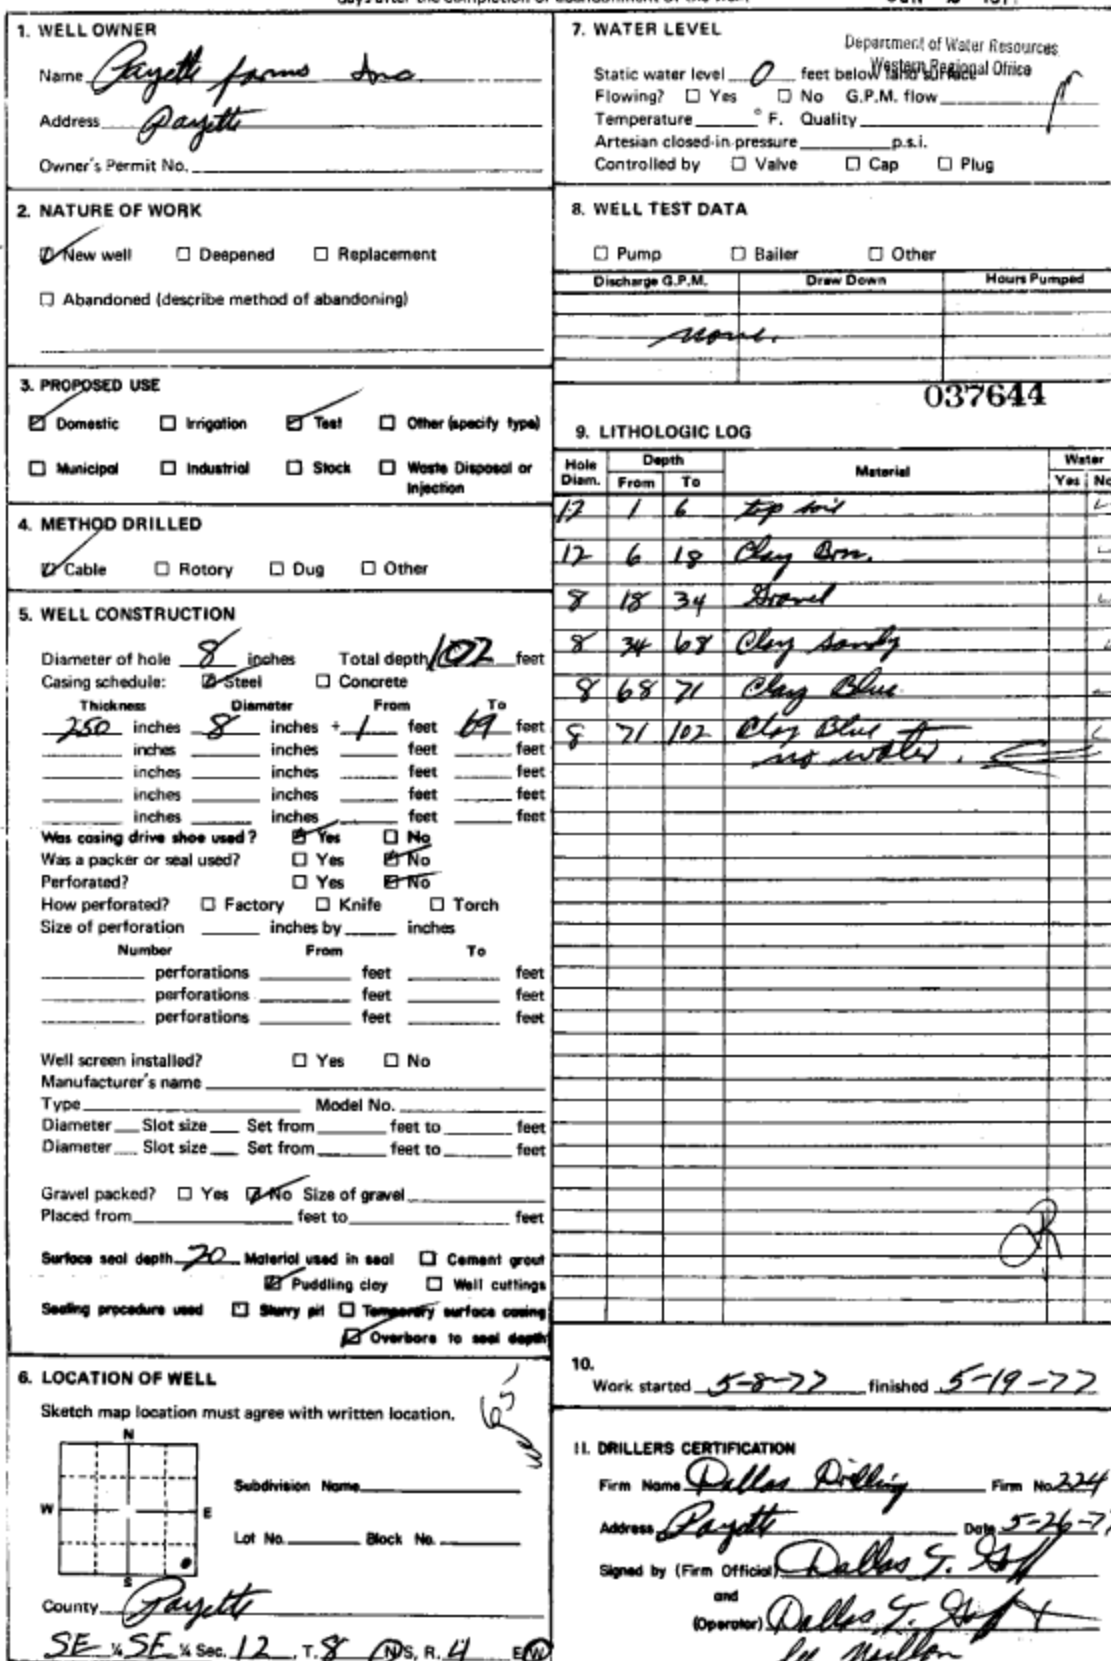 1. WELL OWNER
Name Payette farms Inc.
Address Payette
Owner's Permit No.
2. NATURE OF WORK
New well Deepened Replacement
Abandoned (describe method of abandoning)
3. PROPOSED USE
Domestic Irrigation Test Other (specify type)
Municipal Industrial Stock Waste Disposal or
Injection
4. METHOD DRILLED
Cable Rotory Dug Other
5. WELL CONSTRUCTION
Diameter of hole 8 inches Total depth 102 feet
Casing schedule: Steel Concrete
Thickness Diameter From To
250 inches 8 inches + 1 feet 69 feet
inches inches feet feet
inches inches feet feet
inches inches feet feet
inches inches feet feet
Was casing drive shoe used? Yes No
Was a packer or seal used? Yes No
Perforated? Yes No
How perforated? Factory Knife Torch
Size of perforation inches by inches
Number From To
perforations feet feet
perforations feet feet
perforations feet feet
Well screen installed? Yes No
Manufacturer's name
Type Model No.
Diameter Slot size Set from feet to feet
Diameter Slot size Set from feet to feet
Gravel packed? Yes No Size of gravel
Placed from feet to feet
Surface seal depth 20 Material used in seal Cement grout
Puddling clay Well cuttings
Sealing procedure used Slurry pit Temporary surface casing
Overbore to seal depth
6. LOCATION OF WELL
Sketch map location must agree with written location.
N
Subdivision Name
W E
Lot No. Block No.
S
County Payette
SE ¼ SE ¼ Sec. 12, T. 8 N/S, R. 4 E/W
7. WATER LEVEL
Department of Water Resources
Western Regional Office
Static water level 0 feet below land surface
Flowing? Yes No G.P.M. flow
Temperature ° F. Quality
Artesian closed-in pressure p.s.i.
Controlled by Valve Cap Plug
8. WELL TEST DATA
Pump Bailer Other
Discharge G.P.M. Draw Down Hours Pumped
none.
037644
9. LITHOLOGIC LOG
Hole Diam. Depth From To Material Water Yes No
12 1 6 top soil
12 6 18 Clay Brn.
8 18 34 Gravel
8 34 68 Clay sandy
8 68 71 Clay Blue
8 71 102 Clay Blue
no water.
10.
Work started 5-8-77 finished 5-19-77
11. DRILLERS CERTIFICATION
Firm Name Dallas Drilling Firm No. 224
Address Payette Date 5-26-77
Signed by (Firm Official) Dallas T. Goff
and
(Operator) Dallas T. Goff